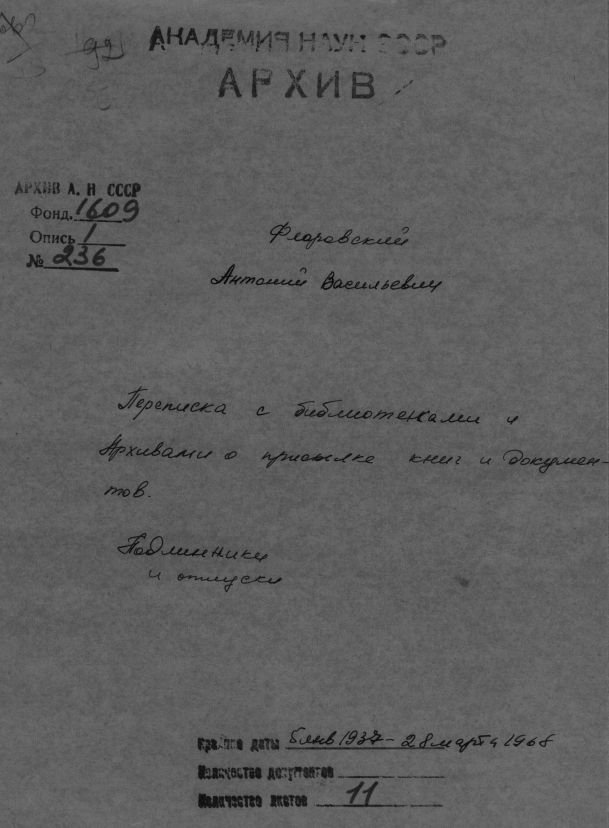 92
АКАДЕМИЯ НАУК СССР
АРХИВ
АРХИВ А. Н СССР
Фонд. 1609
Опись 1
№ 236
Флоровский
Антоний Васильевич
Переписка с библиотеками и
Архивами о присылке книг и докумен-
тов.
Подлинники
и отпуски
Крайние даты 5 янв 1937 - 28 марта 1968
Количество документов
Количество листов 11